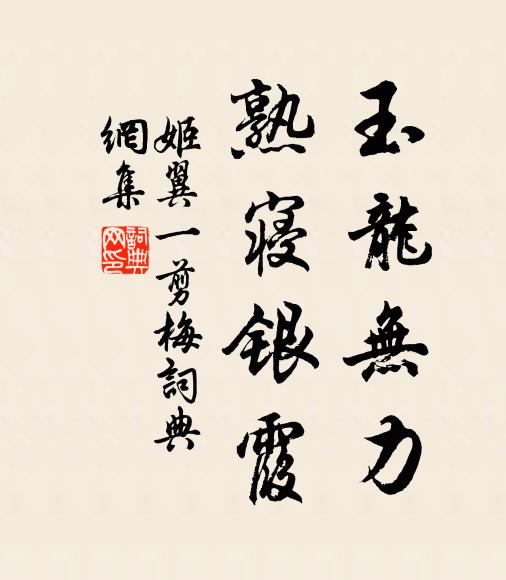 玉龍無力
熟寢銀霞
姬翼一剪梅詞典
網集
詞典網印